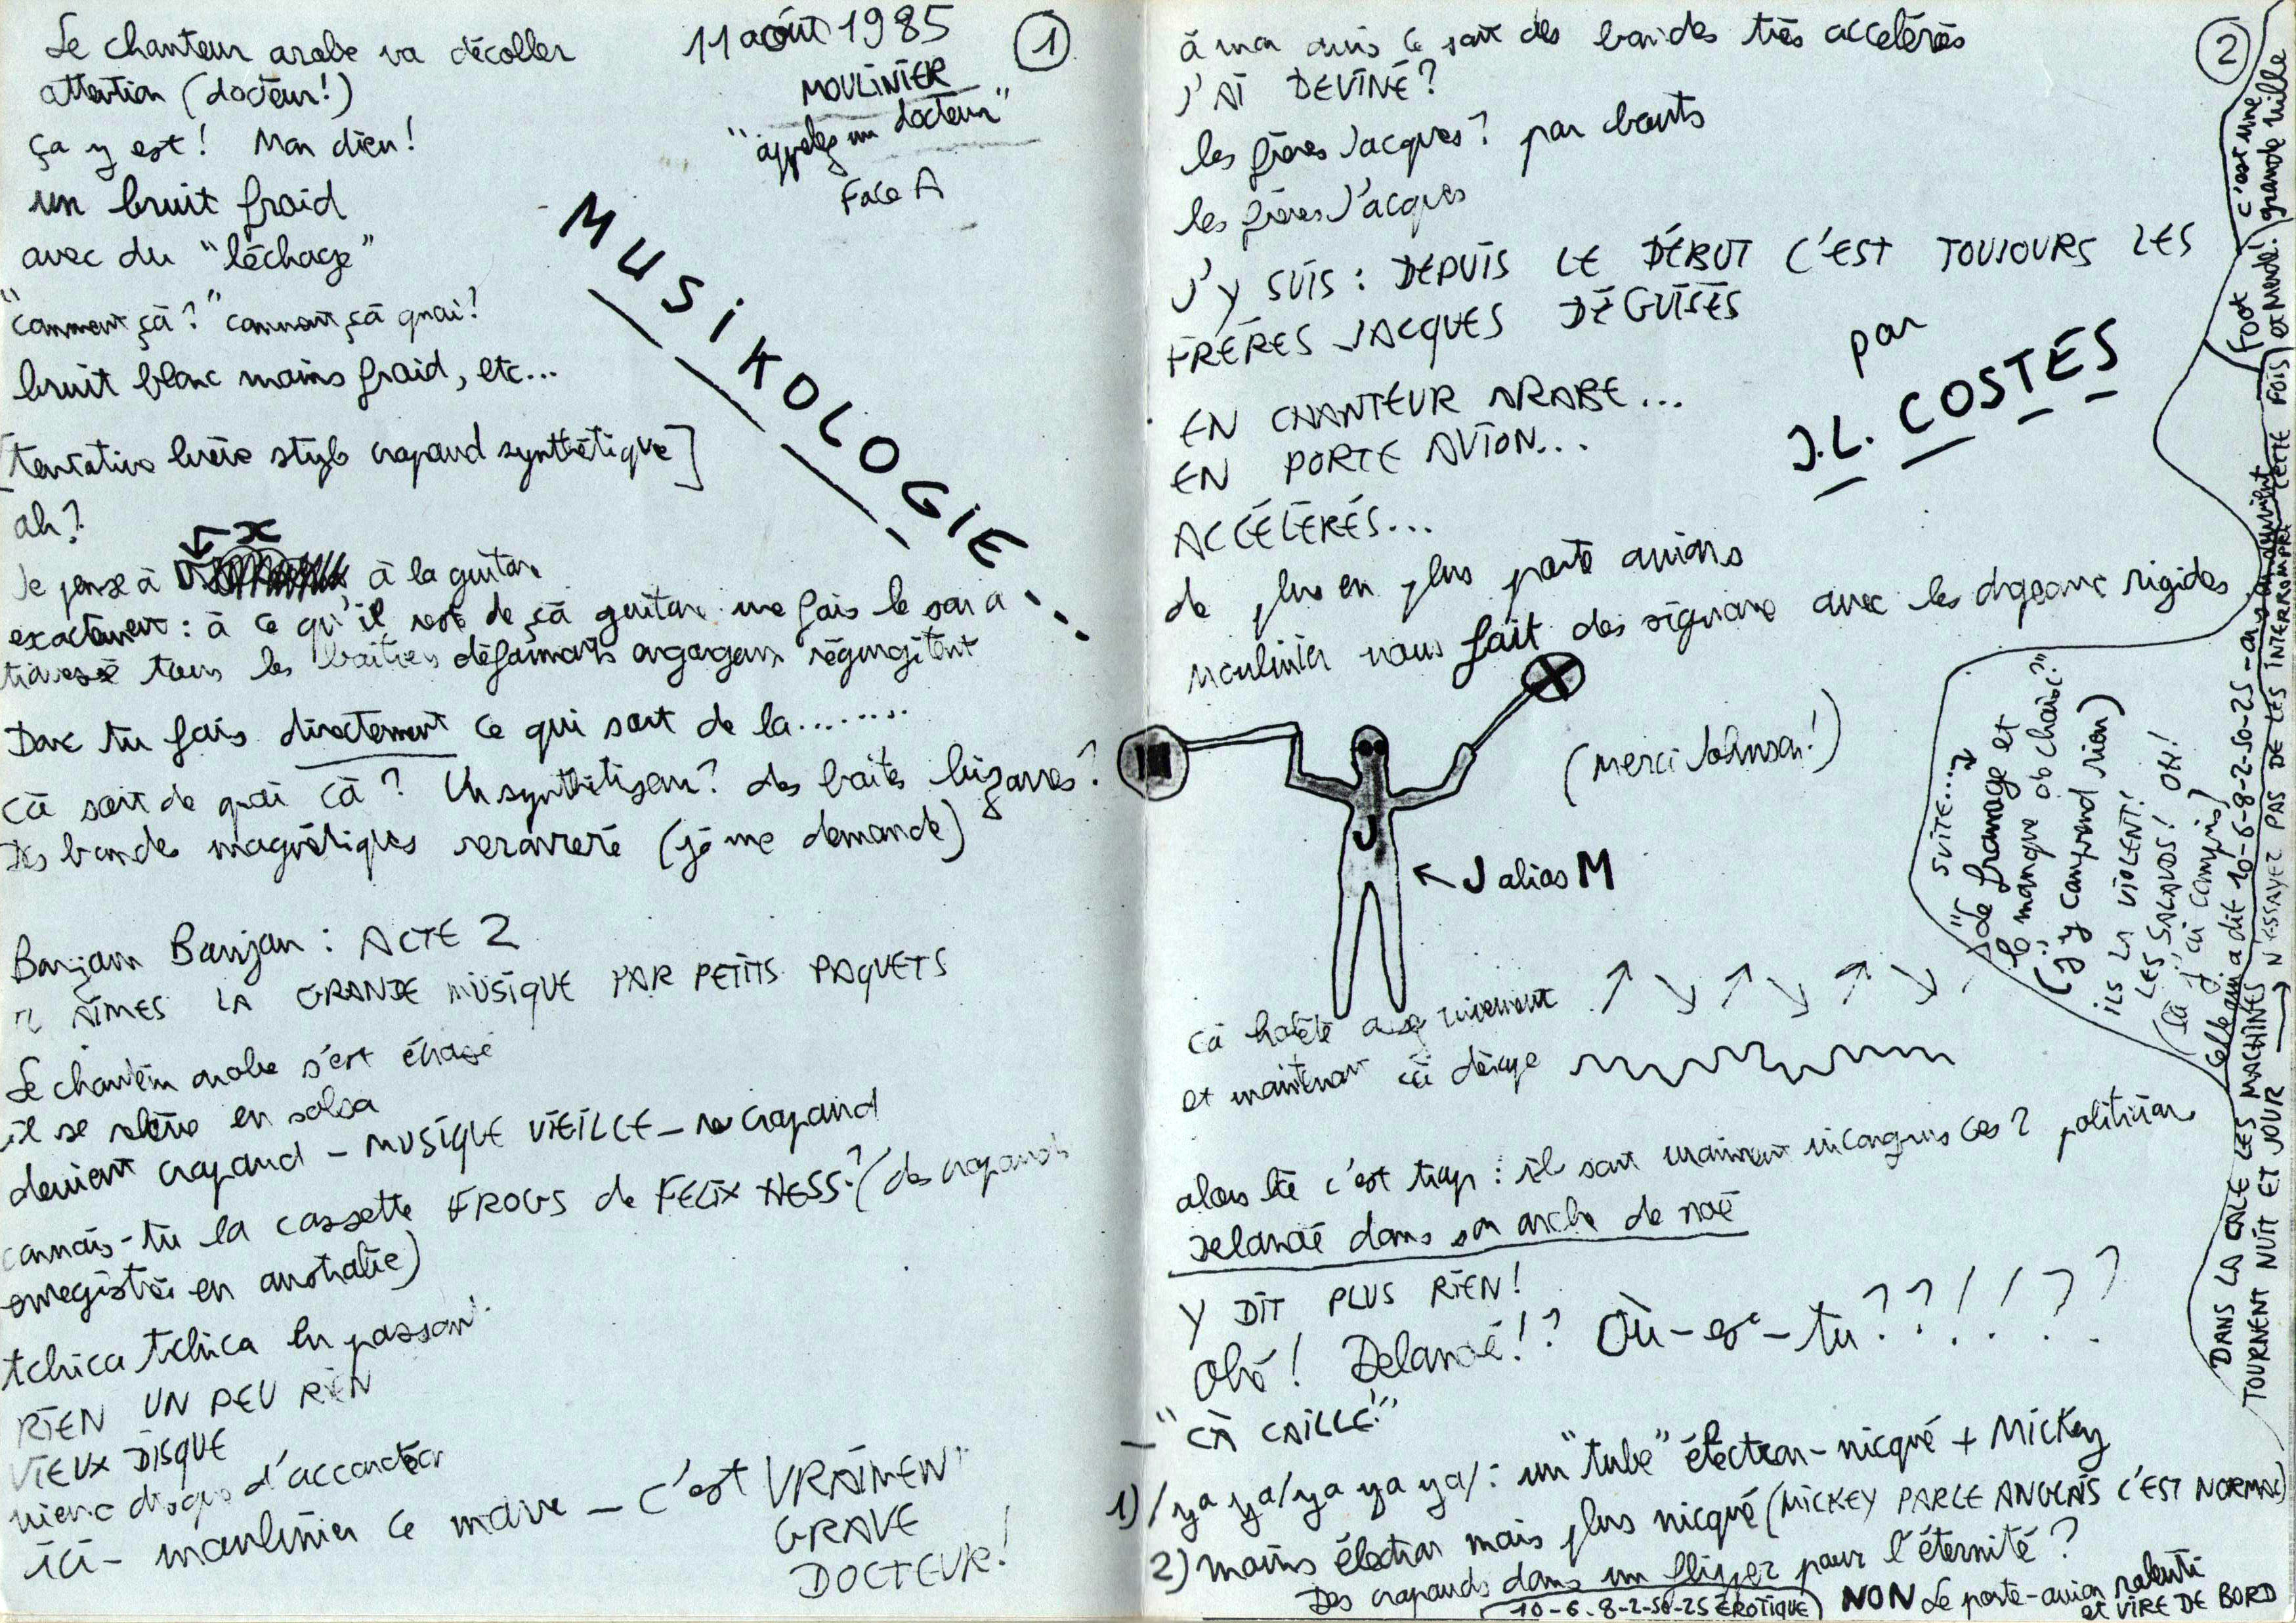 11 août 1985
1
MOULINIER
"appelez un docteur"
Face A
MUSIKOLOGIE...
Le chanteur arabe va décoller
attention (docteur!)
ça y est! Mon dieu!
un bruit froid
avec du "léchage"
"comment çà?" comment çà quoi?
bruit blanc moins froid, etc...
[tentative brève style crapaud synthétique]
ah?
x
Je pense à à la guitare
exactement: à ce qu'il reste de çà guitare une fois le son a
traversé tous les boitiers déformants régurgitant
Donc tu fais directement ce qui sort de la........
Cà sort de quoi cà? Un synthétiseur? des boites bizarres?
Des bandes magnétiques (jé me demande)
Bonjour Bonjour: ACTE 2
AIMES LA GRANDE MUSIQUE PAR PETITS PAQUETS
Le chanteur arabe s'est écrasé
il se relève en salsa
devient crapaud - MUSIQUE VIEILLE - re crapaud
connais-tu la cassette FROGS de FELIX HESS? (des crapauds
enregistrés en australie)
tchica tchica en passant.
RIEN UN PEU RIEN
VIEUX DISQUE
vieux disque d'accordéon
ici - moulinier ce marre - c'est VRAIMENT
GRAVE
DOCTEUR!
2
à mon avis ce sont des bandes très accélérées
J'AI DEVINÉ?
les frères Jacques? par bouts
les frères Jacques
J'Y SUIS: DEPUIS LE DÉBUT C'EST TOUJOURS LES
FRÈRES JACQUES DÉGUISÉS
EN CHANTEUR ARABE...
EN PORTE AVION...
ACCÉLÉRÉS...
par
J.L. COSTES
de plus en plus porte avions
Moulinier nous fait des signaux avec les drapeaux rigides
(merci Johnson!)
J
← J alias M
Cà halète agressivement ↗ ↘ ↗ ↘ ↗ ↘
et maintenant cà dérape
alors là c'est trop: ils sont vraiment incongrus ces 2 politiciens
Delanoé dans son arche de noé
Y DIT PLUS RIEN!
Ohé! Delanoé!? Où-es-tu??!!??
- "CÀ CAILLE!"
1) /ya ya/ya ya ya/: un "tube" électron-nicqué + Mickey
2) moins électron mais plus nicqué (MICKEY PARLE ANGLAIS C'EST NORMAL)
Des crapauds dans un flipper pour l'éternité?
10-6-8-2-50-25 EROTIQUE
NON Le porte-avion ralenti
et VIRE DE BORD
DANS LA CALE LES MACHINES
TOURNENT NUIT ET JOUR → N'ESSAYEZ PAS DE LES INTERROMPRE CETTE FOIS
SUITE...
"Le freinage et
le manque de chaise?"
(j'y comprend rien)
ILS LA VIOLENT!
LES SALAUDS! OH!
(là j'ai compris)
elle a dit 10-6-8-2-50-25-
Foot
et Merde!
c'est une
grande ville